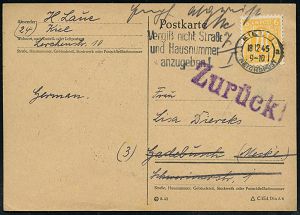 Absender:
H Laue
(24) Kiel
Wohnort, auch Zustell- oder Leitpostamt
Lerchenstr. 10
Straße, Hausnummer, Gebäudeteil, Stockwerk oder Postschließfachnummer
German.
Postkarte
Vergiß nicht Straße
und Hausnummer
anzugeben!
KIEL
18.12.45
9-10
6
Zurück!
Frau
Lisa Diercks
(3) Gadebusch (Meckl.)
Schwerinerstr. 1
Straße, Hausnummer, Gebäudeteil, Stockwerk oder Postschließfachnummer